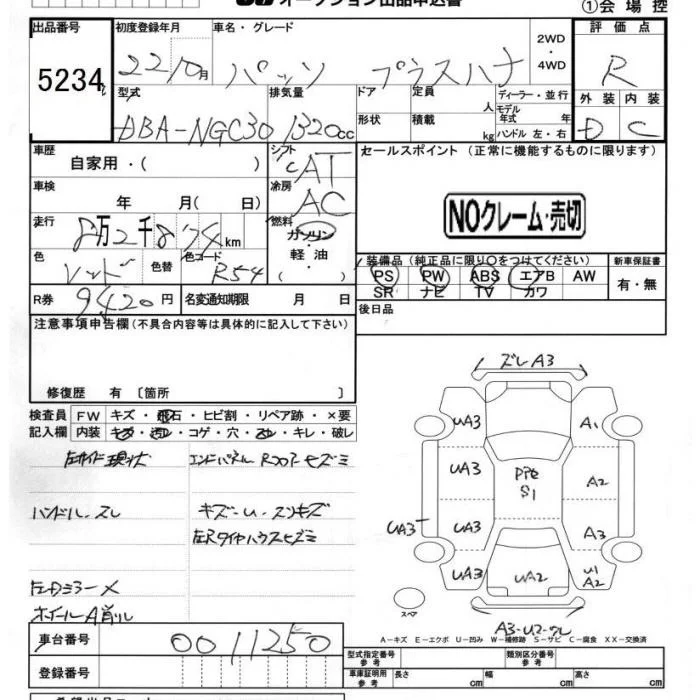 オークション出品申込書
①会場控
出品番号
5234
初度登録年月
22/10月
車名・グレード
パッソ プラスハナ
2WD
・
4WD
評価点
R
型式
DBA-NGC30
排気量
1320cc
ドア
定員
人
ディーラー・並行
モデル
年式 年
形状
積載
kg
ハンドル 左・右
外装
内装
D
C
車歴
自家用・( )
シフト
CAT
セールスポイント (正常に機能するものに限ります)
NOクレーム・売切
車検
年 月( 日)
冷房
AC
走行
8万2千874km
燃料
ガソリン
・
軽油
・
( )
色
レッド
色替
色コード
R54
装備品(純正品に限り○をつけてください)
新車保証書
PS PW ABS エアB AW
SR ナビ TV カワ
有・無
R券
9420円
名変通知期限 月 日
後日品
注意事項申告欄(不具合内容等は具体的に記入して下さい)
修復歴 有 〔箇所 〕
検査員
記入欄
FW
キズ・飛石・ヒビ割・リペア跡・×要
内装
キズ・汚れ・コゲ・穴・スレ・キレ・破レ
現状
エンドパネル Rフロアヒズミ
ハンドル・スレ
キズ・U・スリキズ
左Rタイヤハウスヒズミ
左ドアミラー×
ホイールA削り
車台番号
0011250
登録番号
ズレA3
UA3
A1
UA3
PPセ
S1
A2
UA3
UA3
A3
UA3
UA2
U1
A2
スペア
A3-U2-ワレ
A－キズ E－エクボ U－凹み W－補修跡 S－サビ C－腐食 XX－交換済
型式指定番号
参考
類別区分番号
参考
車庫証明用
参考
長さ cm
幅 cm
高さ cm